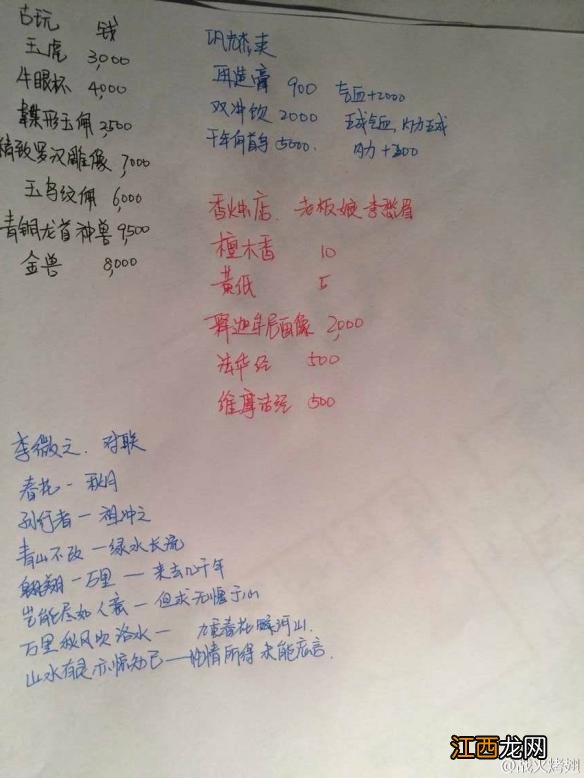 古玩 钱
玉虎 3,000
牛眼杯 4,000
蝶形玉佩 2,500
精致罗汉雕像 7,000
玉鸟纹佩 6,000
青铜龙首神兽 9,500
金兽 8,000
再造膏 900 气血+2000
双冲饮 2000 五成气血,内力五成
千年何首乌 5000. 内力+300
香烛店. 老板娘 李黛眉
檀木香 10
黄纸 5
释迦牟尼画像 2,000
法华经 500
维摩诘经 500
李微之. 对联
春花 - 秋月
孙行者 - 祖冲之
青山不改 - 绿水长流
翱翔一万里 — 来去几千年
岂能尽如人意 - 但求无愧于心
万里秋风吹洛水 - 九重春花暖河山.
山水有灵亦惊知己 — 性情所得未能忘言.
江西龙网
www.jxlw.com
@战火烤翅